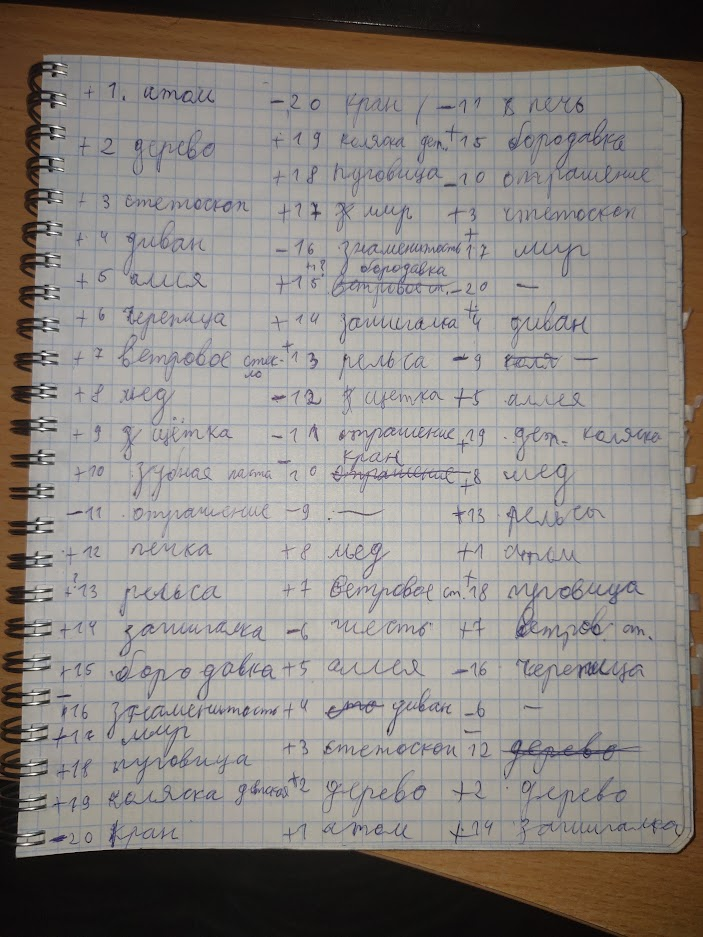 + 1. атом
+ 2 дерево
+ 3 стетоскоп
+ 4 диван
+ 5 аллея
+ 6 черепица
+ 7 ветровое стек-
ло
+ 8 мёд
+ 9 щётка
+ 10 зубная паста
- 11 отрашение
+ 12 печка
+ 13 рельса
+ 14 зажигалка
+ 15 бородавка
- 16 знаменитость
+ 17 мир
+ 18 пуговица
+ 19 коляска детская
- 20 кран
- 20 кран /
+ 19 коляска дет.
+ 18 пуговица
+ 17 мир
- 16 знаменитость
+? бородавка
+ 15 ветровое ст.
+ 14 зажигалка
+ 13 рельса
- 12 щетка
- 11 отрашение
кран
- 10 отрашение
- 9 —
+ 8 мёд
+ 7 ветровое ст.
- 6 честь
+ 5 аллея
+ 4 диван
+ 3 стетоскоп
+ 2 дерево
+ 1 атом
- 11 печь
+ 15 бородавка
- 10 отрашение
+ 3 стетоскоп
+ 17 мир
- 20 —
+ 4 диван
- 9 —
+ 5 аллея
+ 19 дет. коляска
+ 8 мёд
+ 13 рельсы
+ 1 атом
+ 18 пуговица
+ 7 ветров. ст.
- 16 черепица
- 6 —
- 12 дерево
+ 2 дерево
+ 14 зажигалка